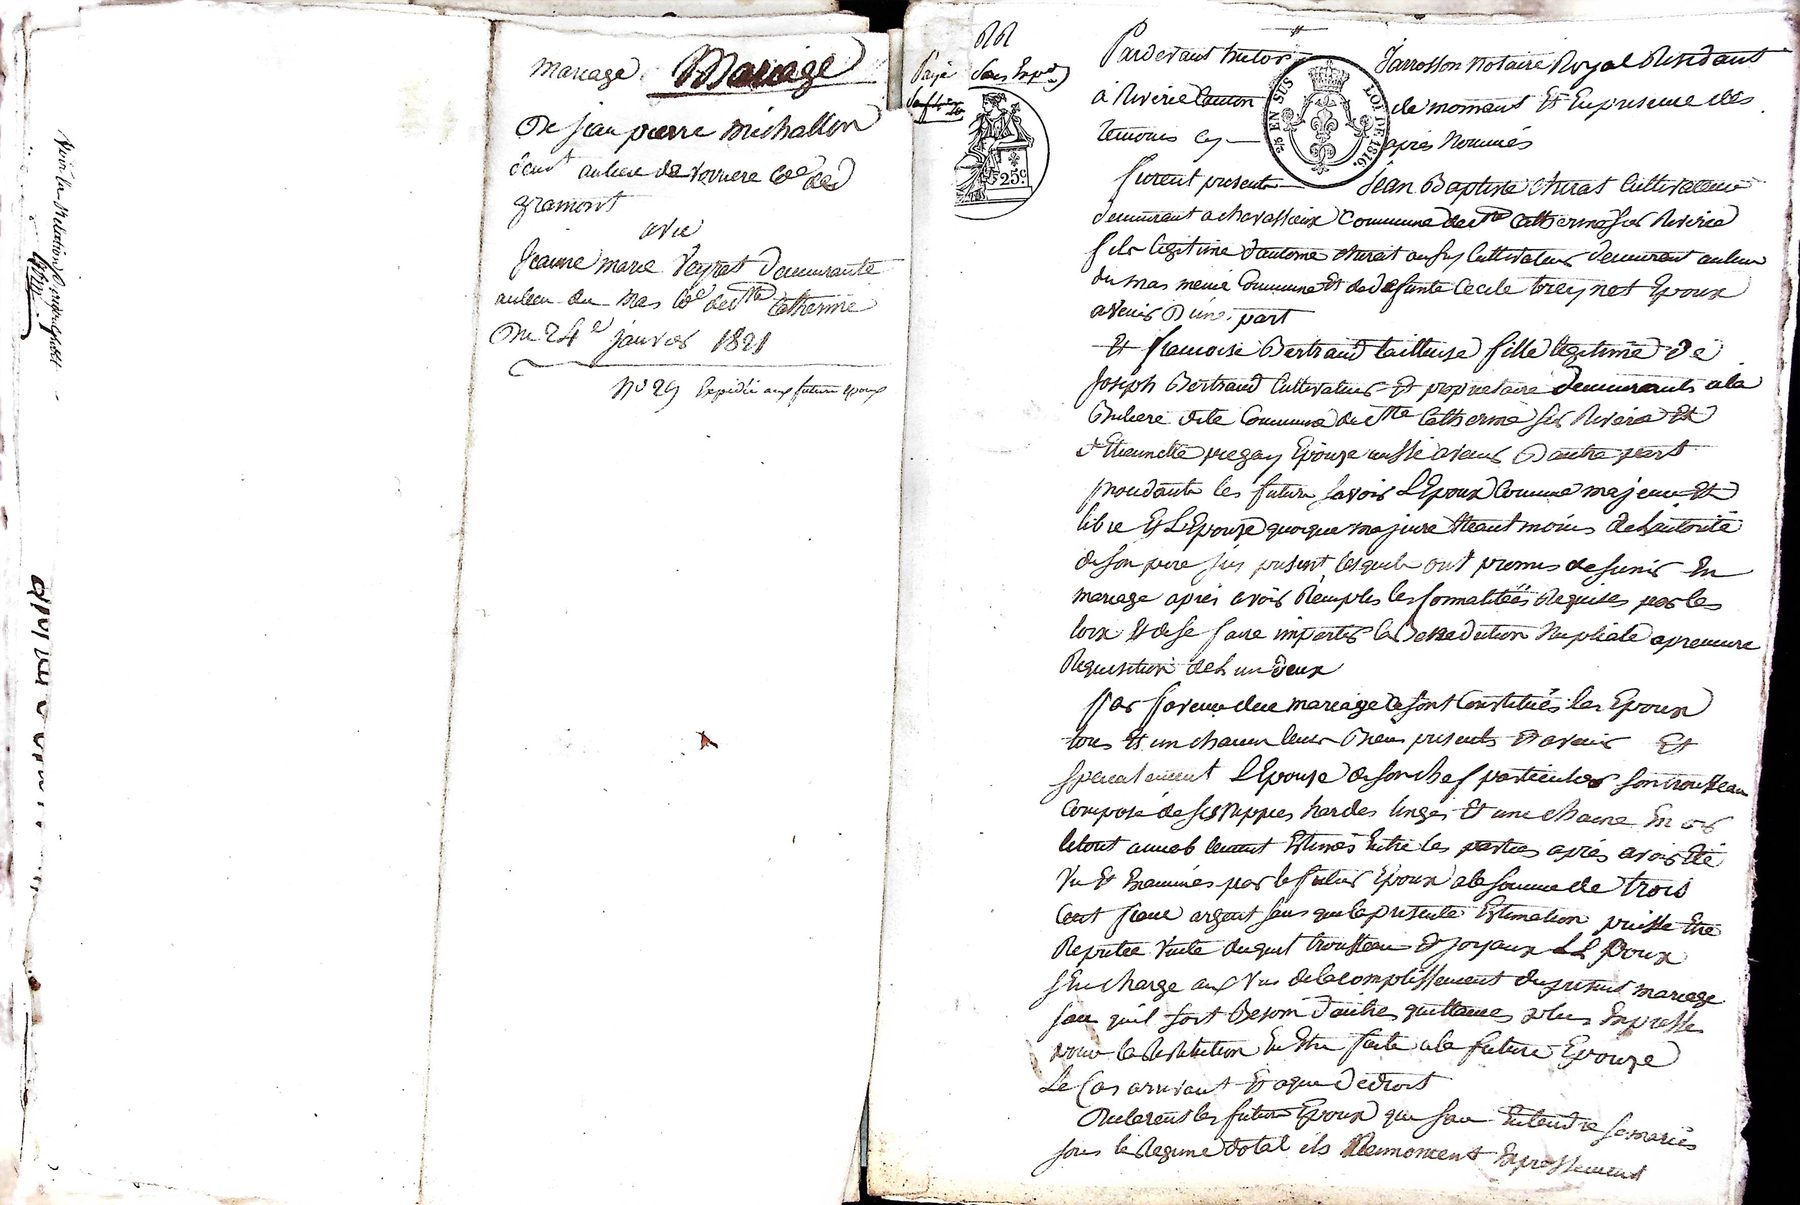 Mariage Mariage
De jean pierre michallon
aulieu de
gramont
avec
Jeanne marie Veyrat demeurante
aulieu du mas Cne de Ste Catherine
Du 24e janvier 1821
No 29 Expédié aux futurs epoux
Payé Sans
25c
25 EN SUS
LOI DE 1816.
Pardevant hector Jarrosson notaire Royal Résidant
à Riverie Canton de mornant Et En presence des
temoins cy après Nommés
furent presents Jean Baptiste cherat Cultivateur
demeurant a chavassieux Commune de Ste Catherine sur Riverie
fils légitime d'antoine cherat aussy Cultivateur demeurant aulieu
du mas meme Commune Et de defunte Cecile treynet Epoux
avenir D'une part
Et francoise Bertrand tailleuse fille légitime de
Joseph Bertrand Cultivateur Et proprietaire demeurants ala
dite Commune de Ste Catherine sur Riverie Et
d'Etiennette Epouze aussi avenir D'autre part
procedants les futurs savoir L'Epoux Comme majeur Et
libre Et L'Epouze quoique majeure de L'autorité
de son pere icy présent lesquels ont promis de s'unir En
mariage après avoir Remplis les formalités Requises par les
loix Et de se faire impartir la Bénédiction Nuptiale a premiere
Requisition de L'un deux
En faveur du mariage se sont Constitués les Epoux
tous Et un chacun leurs Biens presents Et avenir Et
specialement L'Epouze de son chef particulier son trousseau
Composé de ses nippes hardes linges Et une chaine En or
le tout Estimés Entre les parties après avoir Eté
vu Et Examinés par le futur Epoux a la somme de trois
Cent franc argent sans que la presente Estimation puisse Etre
Reputée Vente duquel trousseau Et joyaux L'Epoux
s'En charge aux Vus de lacomplissement du présent mariage
sans quil soit Besoin d'autres quittances plus Expresse
pour la Restitution En Etre faite a la future Epouze
Le Cas arrivant Et a que de droit
Declarent les futurs Epoux que sans Entendre se mariés
sous le Regime dotal ils Renoncent Expressement